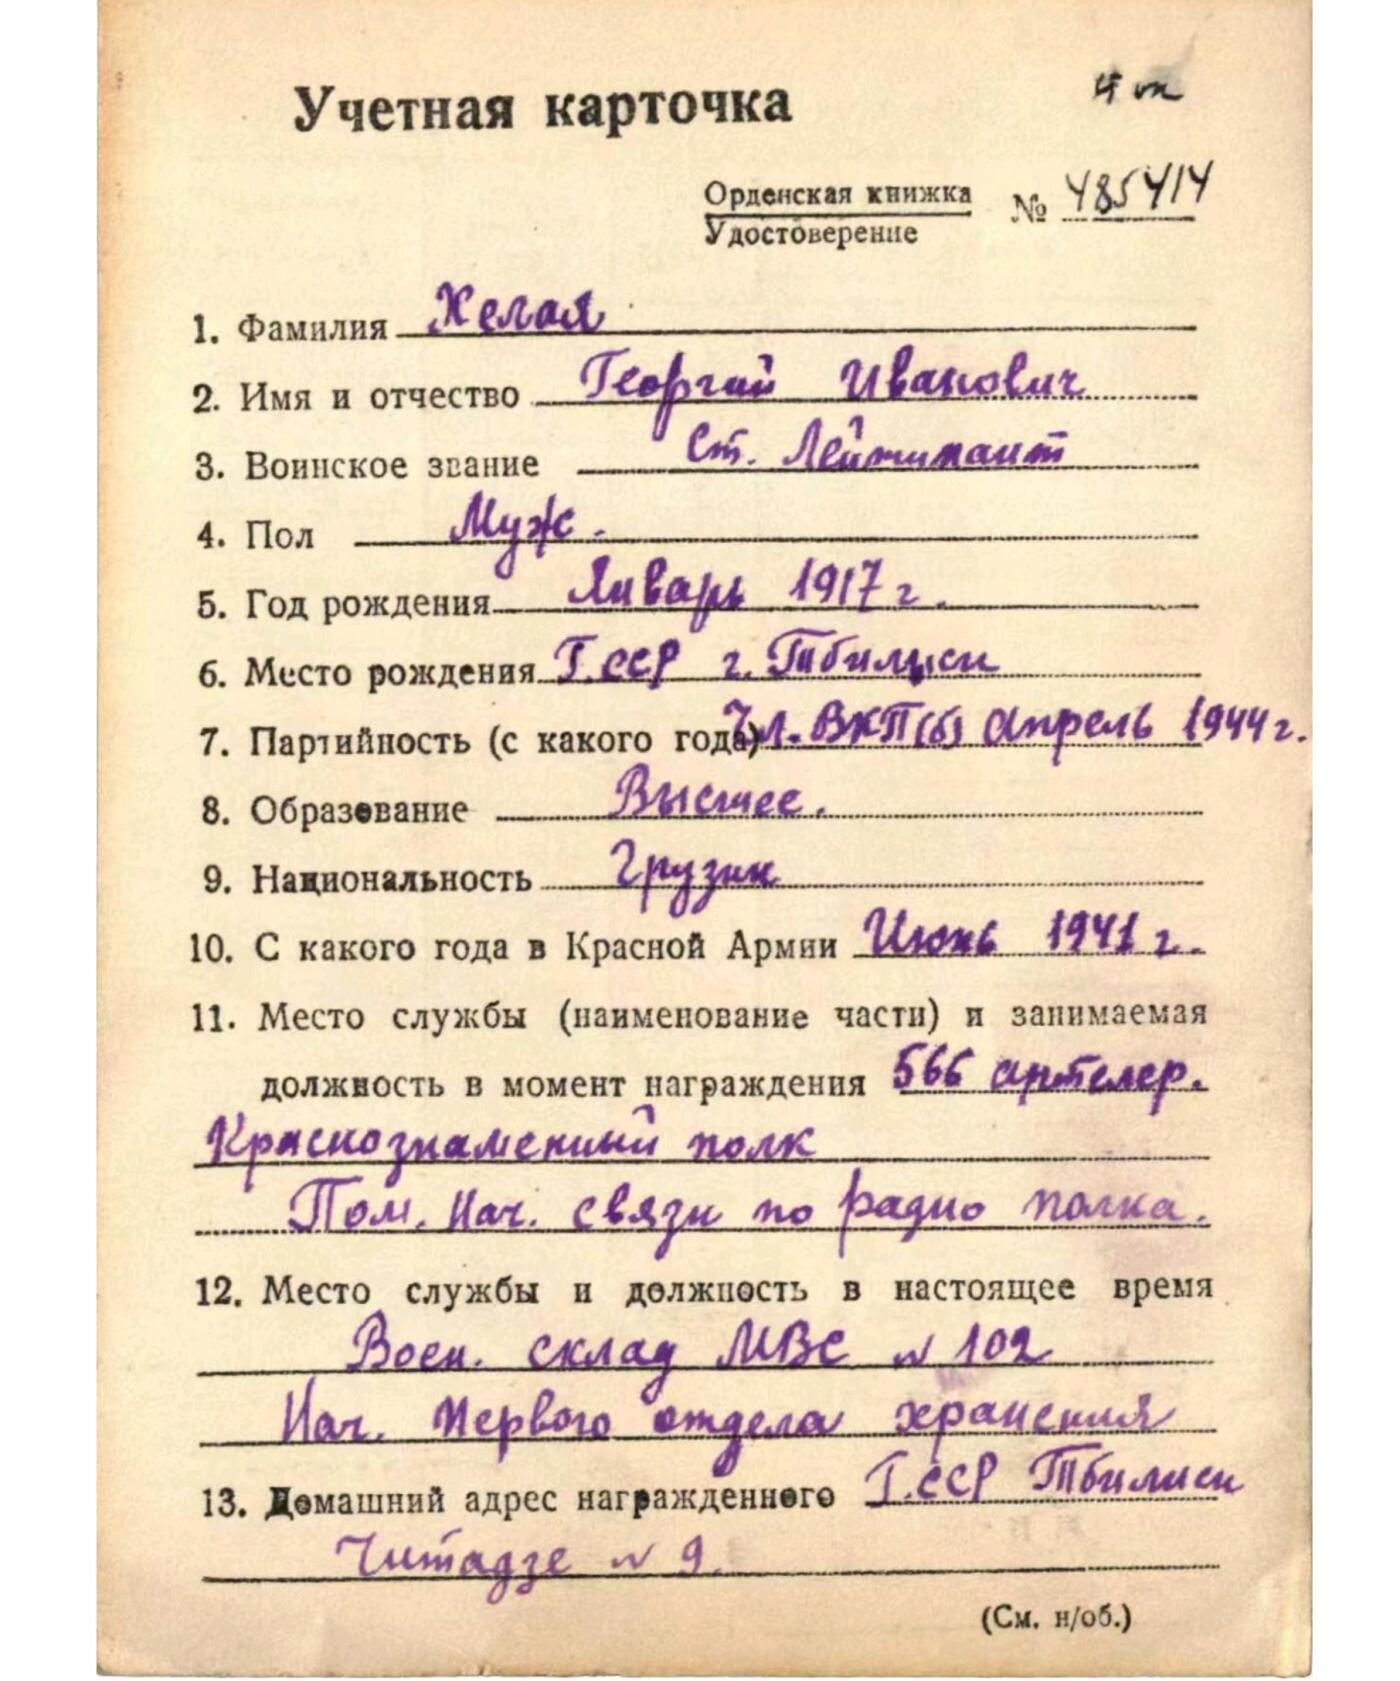 Учетная карточка
Орденская книжка
Удостоверение
№ 485414
1. Фамилия Хелая
2. Имя и отчество Георгий Иванович
3. Воинское звание Ст. Лейтинант
4. Пол Муж.
5. Год рождения Январь 1917 г.
6. Место рождения Г.ССР г. Тбилиси
7. Партийность (с какого года) Чл. ВКП(б) Апрель 1944 г.
8. Образование Высшее.
9. Национальность Грузин
10. С какого года в Красной Армии Июнь 1941 г.
11. Место службы (наименование части) и занимаемая
должность в момент награждения 566 артелер.
Краснознаменный полк
Пом. Нач. связи по радио полка.
12. Место службы и должность в настоящее время
Воен. склад МВС № 102
Нач. Первого отдела хранения
13. Домашний адрес награжденного Г.ССР Тбилиси
Читадзе № 9.
(См. н/об.)